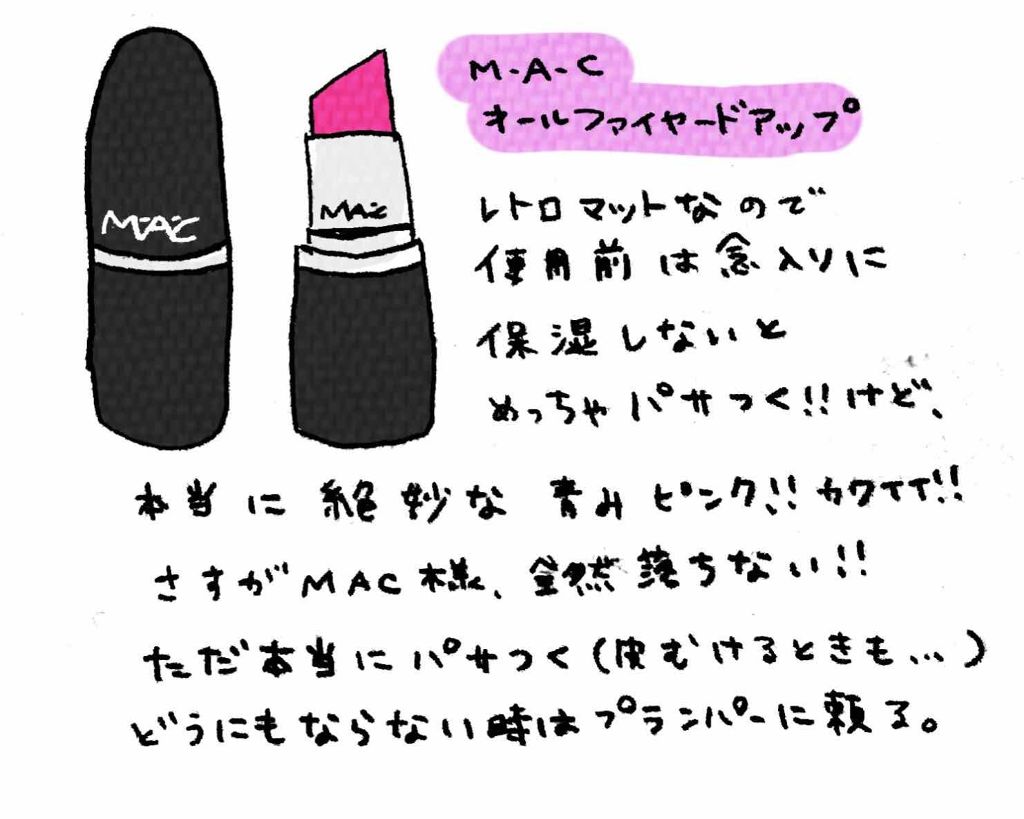 M・A・C
オールファイヤードアップ
MAC
MAC
レトロマットなので
使用前は念入りに
保湿しないと
めっちゃパサつく!!けど、
本当に絶妙な青みピンク!!カワイイ!!
さすがMAC様、全然落ちない!!
ただ本当にパサつく(皮むけるときも...)
どうにもならない時はプランパーに頼る。